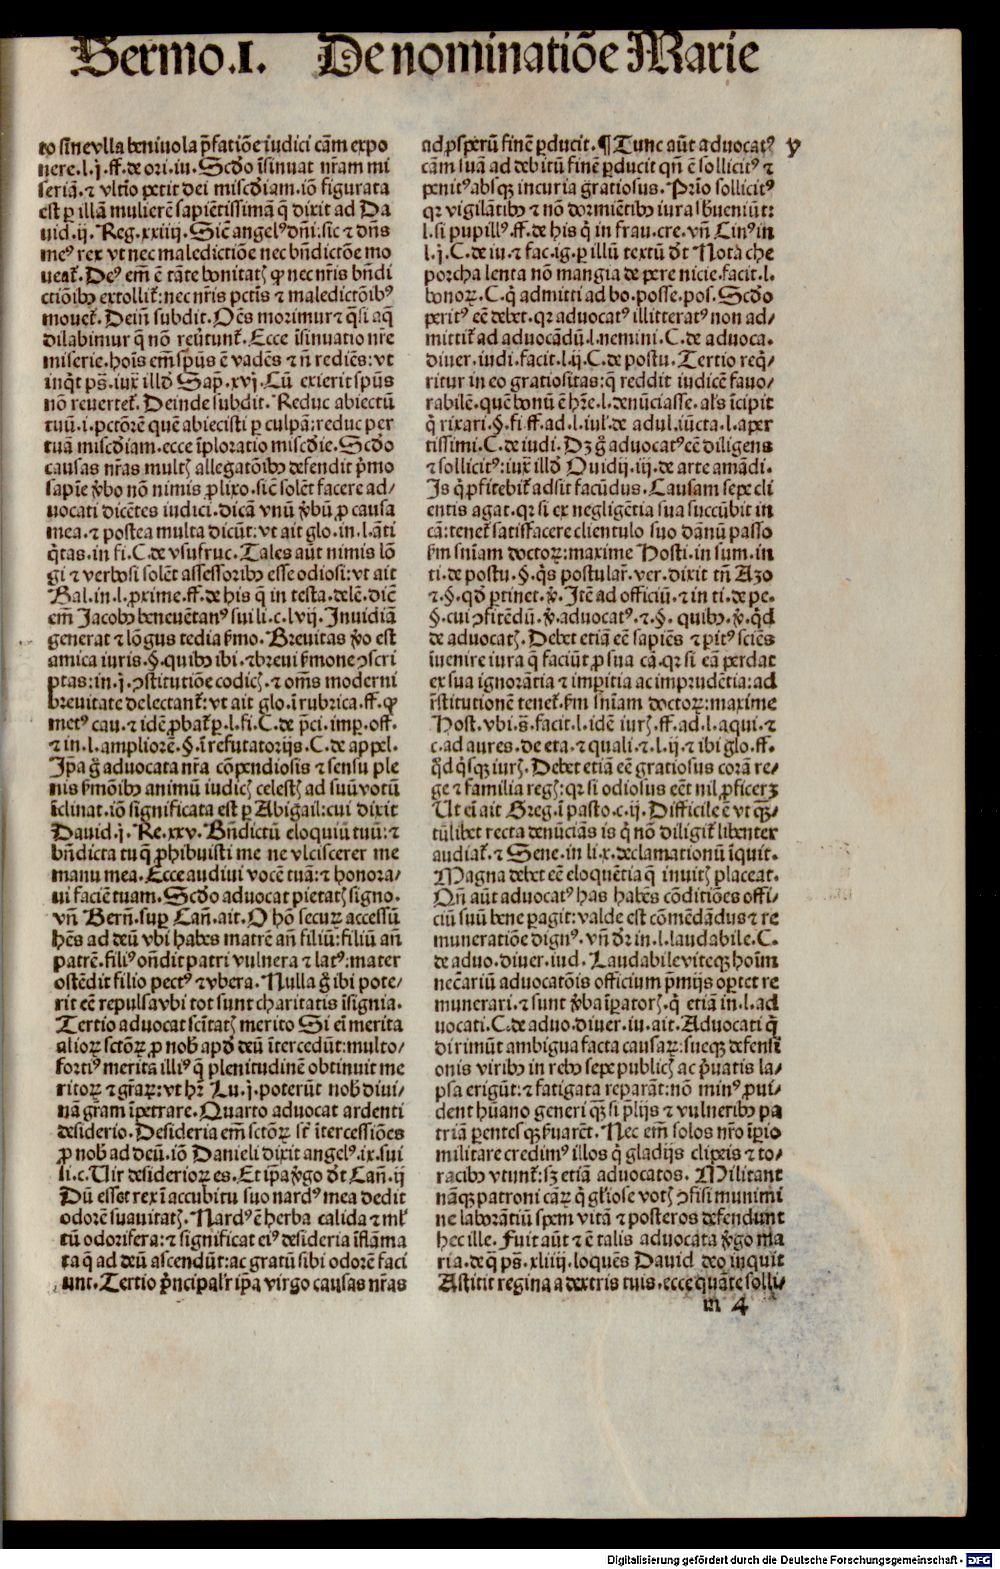 Sermo.I. De nominatiõe Marie
to sĩne vlla beniuola p̃fatiõe iudici cãm expo
nere.l.j.ff.de ori.iu.Scḋo ĩsinuat nr̃am mi
seriã.⁊ vltĩo petit dei misc̃diam.iõ figurata
est ꝑ illã mulierẽ sapiẽtissimã q̃ dixit ad Da
uid.ij.Reg.xxiiij.Sic̃ angelꝰ dñi:sic̃ ⁊ dñs
meꝰ rex vt nec maledictiõe nec bñdictõe mo
ueat̃.Deꝰ em̃ ẽ tãte bonitatꝭ ꝙ nec nr̃is bñdi
ctiõibꝫ extollit̃:nec nr̃is pctĩs ⁊ maledictõibꝰ
mouet̃.Dein̄ subdit.Oẽs morimur ⁊ q̃si aq̃
dilabimur q̃ nõ reṽtunt̃.Ecce ĩsinuatio nr̃e
miserie.hoĩs em̃ sp̃us ẽ vadẽs ⁊ ñ rediẽs:vt
inq̃t ps̃.iux̃ illḋ Sap̃.xvj.Cũ exierit sp̃us
nõ reuertet̃.Deinde subdit.Reduc abiectũ
tuũ.i.pctõrẽ quẽ abiecisti ꝑ culpã:reduc per
tuã misc̃diam.ecce ĩploratio misc̃die.Scḋo
causas nr̃as multꝭ allegatõibꝫ defendit p̃mo
sapĩe ṽbo nõ nimis ꝓlixo.sic̃ solẽt facere ad/
uocati dicẽtes iudici.dicã vnũ ṽbũ ꝓ causa
mea.⁊ postea multa dicũt:vt ait glo.in.l.ãti
q̃tas.in fi.C.de vsufruc.Tales aũt nimis lõ
gi ⁊ verbosi solẽt assessoribꝫ esse odiosi:vt ait
Bal.in.l.ꝓxime.ff.de his q̃ in testa.delẽ.diẽ
em̃ Jacobꝫ beneuẽtanꝰ sui li.c.lvij.Inuidiã
generat ⁊ lõgus tedia ẜmo.Breuitas ṽo est
amica iuris.§.quibꝫ ibi.⁊ breui ẜmone ꝯscri
ptas:in.j.ꝯstitutiõe codicꝭ.⁊ om̃s moderni
breuitate delectant̃:vt ait glo.ĩ rubrica.ff.ꝙ
metꝰ cau.⁊ idẽ ꝓbat̃ ꝑ.l.fi.C.de p̃ci.imp̃.off.
⁊ in.l.ampliorẽ.§.ĩ refutatorijs.C.de appel.
Jp̃a g̃ aduocata nr̃a cõpendiosis ⁊ sensu ple
nis ẜmõibꝫ animũ iudicꝭ celestꝭ ad suũ votũ
ĩclinat.iõ significata est ꝑ Abigail:cui dixit
Dauid.j.Re.xxv.Bñdictũ eloquiũ tuũ:⁊
bñdicta tu q̃ ꝓhibuisti me ne vlciscerer me
manu mea.Ecce audiui vocẽ tuã:⁊ honora/
ui faciẽ tuam.Scḋo aduocat pietatꝭ signo.
vñ Berñ.sup̃ Cañ.ait.O hõ securꝫ accessũ
hẽs ad deũ vbi habes matrẽ añ filiũ:filiũ añ
patrẽ.filiꝰ oñdit patri vulnera ⁊ latꝰ:mater
ostẽdit filio pectꝰ ⁊ vbera.Nulla g̃ ibi pote/
rit eẽ repulsa vbi tot sunt charitatis ĩsignia.
Tertio aduocat sc̃itatꝭ merito Si ei̇̃ merita
alioꝝ sctõꝝ ꝓ nobꝭ apḋ deũ ĩtercedũt:multo/
fortiꝰ merita illiꝰ q̃ plenitudinẽ obtinuit me
ritoꝝ ⁊ gr̃aꝝ:vt hr̃ Lu.j.poterũt nobꝭ diui/
nã gr̃am ĩpetrare.Quarto aduocat ardenti
desiderio.Desideria em̃ sctõꝝ st̃ ĩtercessiões
ꝓ nobꝭ ad deũ.iõ Danieli dixit angelꝰ.ix.sui
li.c.Uir desiderioꝝ es.Et ip̃a ṽgo dt̃ Cañ.ij
Dũ esset rex ĩ accubitu suo nardꝰ mea dedit
odorẽ suauitatꝭ.Nardꝰ ẽ herba calida ⁊ ml̃
tũ odorifera:⁊ significat eiꝰ desideria ĩflãma
ta q̃ ad deũ ascendũt:ac gratũ sibi odorẽ faci
unt.Tertio p̃ncipal'r ip̃a virgo causas nr̃as
ad ꝓsperũ finẽ ꝑducit.¶Tunc aũt aduocatꝰ
y
cãm suã ad debitũ finẽ ꝑducit qñ ẽ sollicitꝰ ⁊
peritꝰ absqꝫ incuria ⁊ gratiosus.Prĩo sollicitꝰ
qꝛ vigilãtibꝫ ⁊ nõ dormiẽtibꝫ iura s̃bueniũt:
l.si pupillꝰ.ff.de his q̃ in frau.cre.vñ Cinꝰ in
l.j.C.de iu.⁊ fac.ig.ꝑ illũ textũ dt̃ Nota che
porcha lenta nõ mangia de pere nicie.facit.l.
bonoꝝ.C.q̃ admitti ad bo.posse.pos.Scḋo
peritꝰ eẽ debet.qꝛ aduocatꝰ illitteratꝰ non ad/
mittit̃ ad aduocãdũ.l.nemini.C.de aduoca.
diuer.iudi.facit.l.ij.C.de postu.Tertio req̃/
ritur in eo gratiositas:q̃ reddit iudicẽ fauo/
rabilẽ.quẽ bonũ ẽ hr̃e.l.denũciasse.al's ĩcipit
q̃ rixari.§.fi.ff.ad.l.iul'.de adul.iũcta.l.aper
tissimi.C.de iudi.Dꝫ g̃ aduocatꝰ eẽ diligens
⁊ sollicitꝰ:iux̃ illḋ Ouidij.iij.de arte amãdi.
Js q̃ ꝓfitebit̃ adsit facũdus.Causam sepe cli
entis agat.qꝛ si ex negligẽtia sua succũbit in
cã:tenet̃ satisfacere clientulo suo dãnũ passo
ẜm sñiam doctoꝝ:maxime Hosti.in sum.in
ti.de postu.§.q̃s postular̃.ver.dixit tñ Azo
⁊.§.qḋ ꝑtinet.ṽ.Jtẽ ad officiũ.⁊ in ti.de pe.
§.cui ꝯfitẽdũ.ṽ.aduocatꝰ.⁊.§.quibꝫ.ṽ.q̃d
de aduocatꝭ.Debet etiã eẽ sapiẽs ⁊ ꝑitꝰ sciẽs
ĩuenire iura q̃ faciũt ꝓ sua cã.qꝛ si eã perdat
ex sua ignorãtia ⁊ imꝑitia ac imprudẽtia:ad
r̃stitutionẽ tenet̃.ẜm sñiam doctoꝝ:maxime
Host.vbi.s̃.facit.l.idẽ iurꝭ.ff.ad.l.aqui.⁊
c.ad aures.de eta.⁊ quali.⁊.l.ij.⁊ ibi glo.ff.
q̃d q̃sqꝫ iurꝭ.Debet etiã eẽ gratiosus corã re/
ge ⁊ familia regꝭ:qꝛ si odiosus eẽt nil ꝓficerꝫ
Ut ei̇̃ ait Greg.ĩ pasto.c.ij.Difficile ẽ vt qꝫ̃/
tũlibet recta denũciãs is q̃ nõ diligit̃ libenter
audiat̃.⁊ Sene.in li.x.declamationũ ĩquit.
Magna debet eẽ eloquẽtia q̃ inuitꝭ placeat.
Qñ aũt aduocatꝰ has habẽs cõditiões offi/
ciũ suũ bene ꝑagit:valde est cõmẽdãdus ⁊ re
muneratiõe dignꝰ.vñ dr̃ in.l.laudabile.C.
de aduo.diuer.iud.Laudabile viteqꝫ hoĩm
nec̃ariũ aduocatõis officium p̃mijs oꝑtet re
munerari.⁊ sunt ṽba ĩꝑatorꝭ.q̃ etiã in.l.ad
uocati.C.de aduo.diuer.iu.ait.Aduocati q̃
dirimũt ambigua facta causaꝝ:sueqꝫ defensi
onis viribꝫ in rebꝫ sepe publicꝭ ac p̃uatis la/
psa erigũt:⁊ fatigata reparãt:nõ minꝰ ꝓui/
dent hũano generi qꝫ̃ si p̃lijs ⁊ vulneribꝫ pa
triã ꝑentesqꝫ ẜuarẽt.Nec em̃ solos nr̃o ĩꝑio
militare credimꝰ illos q̃ gladijs clipeis ⁊ to/
racibꝫ vtunt̃:sꝫ etiã aduocatos.Militant
nãqꝫ patroni cãꝝ q̃ gl'iose votꝭ ꝯfisi munimi
ne laborãtiũ spem vitã ⁊ posteros defendunt
hec ille.Fuit aũt ⁊ ẽ talis aduocata ṽgo ma
ria.de q̃ ps̃.xliiij.loquẽs Dauid deo inquit
Astitit regina a dextris tuis.ecce quãte solli/
m 4
Digitalisierung gefördert durch die Deutsche Forschungsgemeinschaft - DFG